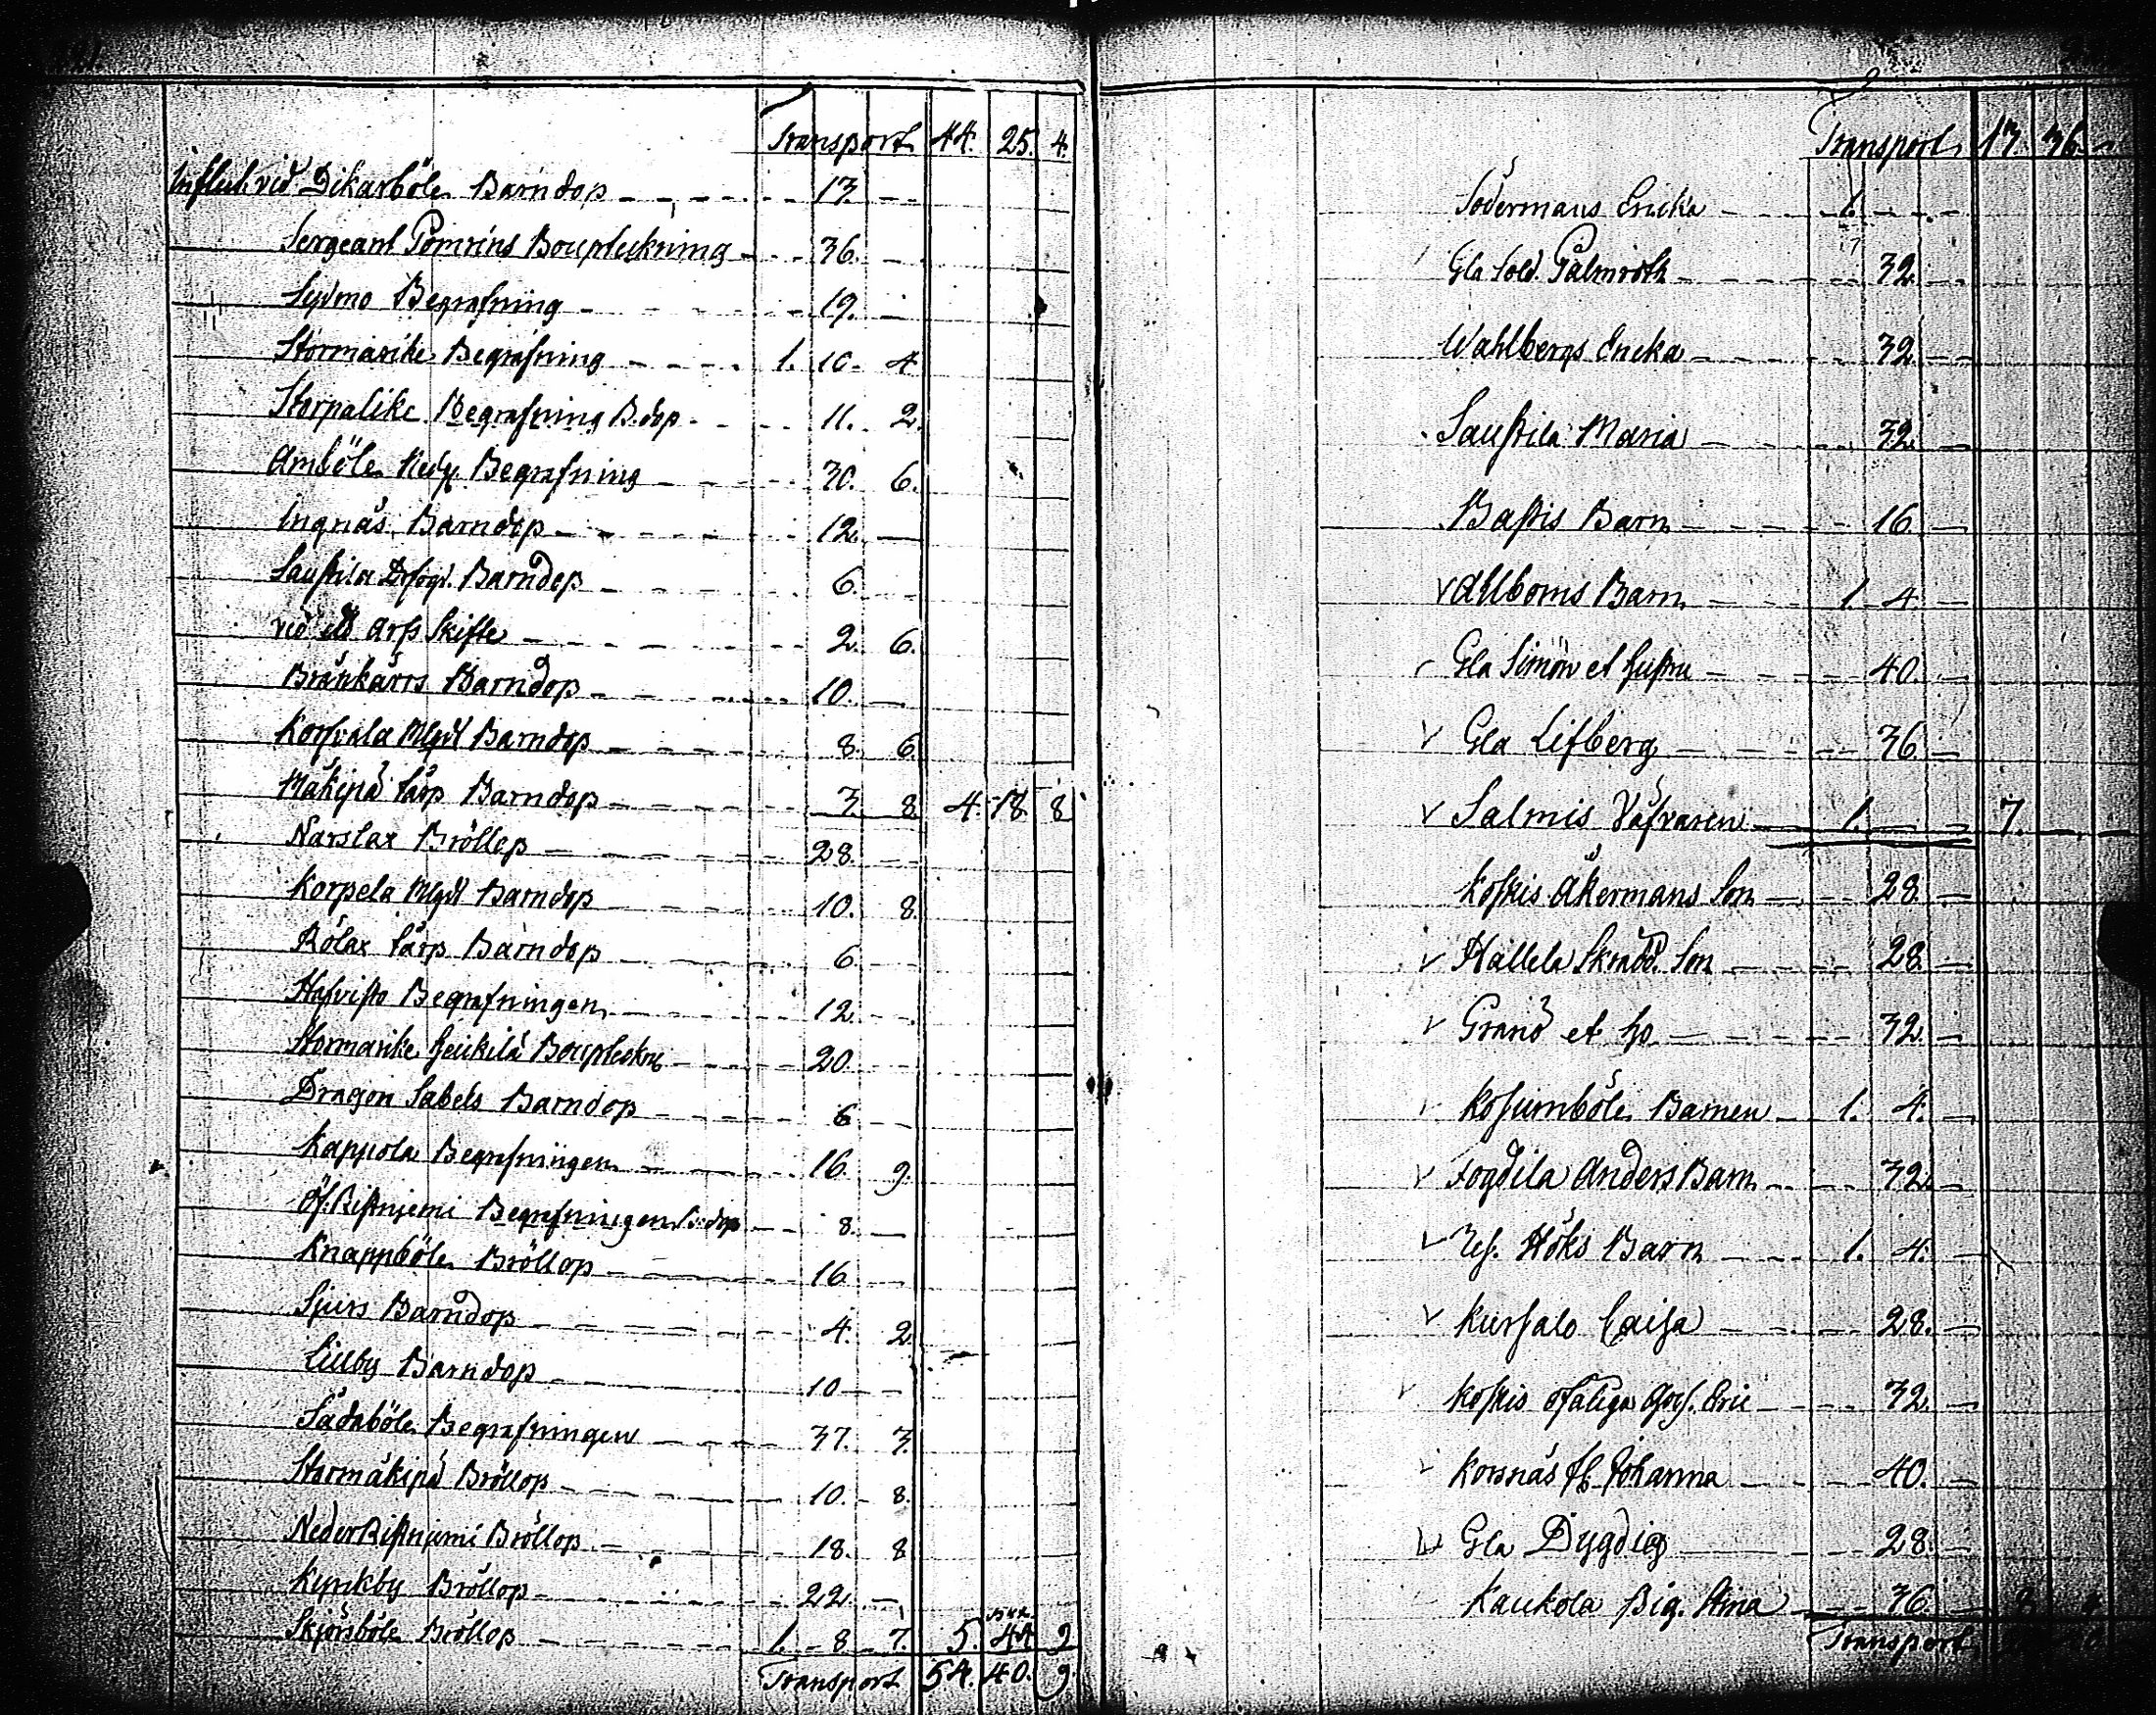 Transport 44. 25. 4.
Influt. vid Dikarböle Barndop 13. —
Sergeant Pomrins Bouptekning 36. —
Syvmo Begrafning 19. —
Stormarike Begrafning 1. 10. 4
Storpalike Begrafning B.dop 11. 2.
Amböle Begrafning 30. 6.
Ingnäs Barndop 12. —
Barndop 6. —
vid Arfs Skifte 2. 6.
Bränkärrs Barndop 10. —
Barndop 8. 6.
Mäkipä Barndop 3. 8. 4. 18. 8
Narslax Bröllop 28. —
Korpela Barndop 10. 8.
Rölax Barndop 6. —
Hafvisto Begrafningen 12. —
Stormarike Heikilä 20. —
Dragon Sabels Barndop 6. —
Kappola Begrafningen 16. 9.
Öf. Ristniemi Begrafningen 8. —
Knappböle Bröllop 16. —
Sjurs Barndop 4. 2.
Lillby Barndop 10 —
Sadaböle Begrafningen 37. 3.
Stormäkipä Bröllop 10. 8.
Neder Ristniemi Bröllop 18. 8
Kyrckby Bröllop 22. —
Skjörsböle Bröllop 1. 8. 7. 5. 9
Transport 54. 40. 9.
Transport 13. 36. —
Södermans Ericka 1. — —
Gla Sold. Palmroth 32. —
Wahlbergs Ericka 32 —
Saustila Maria 32 —
Bastis Barn 16. —
Ahlboms Barn 1. 4 —
Gla Simon et hustru 40. —
Gla Lifberg 36. —
Salmis Väfvaren 1. — — 7. — —
Koskis Åkermans Son 28. —
Hallela Skradd. Son 28. —
Granö et ho 32. —
Kosumböle Barnen 1. 4. —
Fogdila Anders Barn 32. —
Höks Barn 1. 4. —
Kursalo Caisa 28. —
Koskis Eric 32. —
Korsnäs Johanna 40. —
Gla Dygdig 28. —
Kaukola Pig. Stina 36. —
Transport